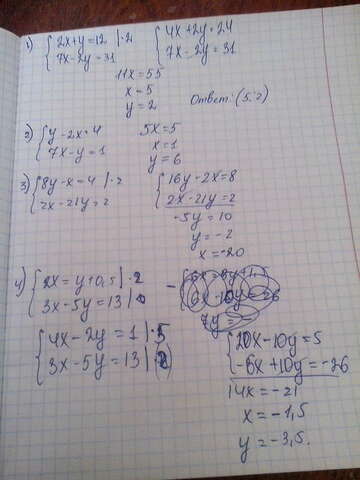 1) { 2x+y=12 | ·2
7x-2y=31
{ 4x+2y=24
7x-2y=31
11x=55
x=5
y=2
Ответ: (5;2)
2) { y-2x=4
7x-y=1
5x=5
x=1
y=6
3) { 8y-x=4 | ·2
2x-21y=2
{ 16y-2x=8
2x-21y=2
-5y=10
y=-2
x=-20
4) { 2x=y+0,5 | ·2
3x-5y=13
{ 4x-2y=1 | ·5
3x-5y=13 | ·2
{ 20x-10y=5
-6x+10y=-26
14x=-21
x=-1,5
y=-3,5.